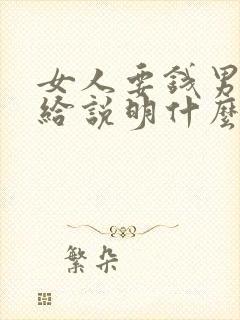 女人要錢男
給說明什麼
繁朵